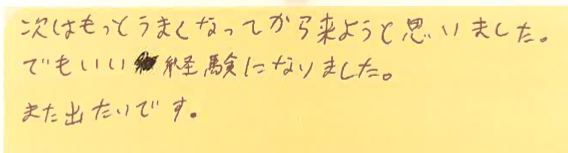 次はもっとうまくなってから来ようと思いました。
でもいい経験になりました。
また出たいです。